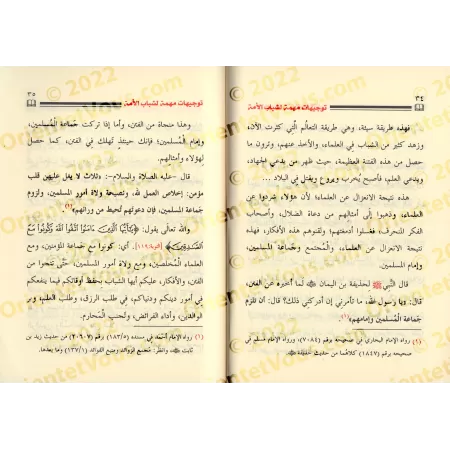 ٣٤
توجيهات مهمة لشباب الأمة
فهذه طريقة سيئة، وهي طريقة التعالُم الَّتي كثرت الآن،
وزهد كثير من الشباب في العلماء، والأخذ عنهم، وترون ما
حصل من هذه الفتنة العظيمة، حيث ظهر من يدعي الجهاد،
ويدعي العلم، فأصبح يُخرب ويروع ويقتل في البلاد ...
هذه نتيجة الانعزال عن العلماء؛ لأن هؤلاء شردوا عن
العلماء، وذهبوا إلى أمثالهم من دعاة الضلال، وأصحاب
الفكر المنحرف، فغسلوا أدمغتهم؛ ولقنوهم هذه الأفكار، فهذه
نتيجة الانعزال عن العلماء، والمُجتمع وجَماعة المسلمين،
وإمام المسلمين.
قال النَّبي ﷺ لحذيفة بن اليمان ﵁ لما أخبره عن الفتن،
قال: وما رسول الله، ما تأمرني إن أدركني ذلك؟ قال: أن تلزم
جَماعة المُسلمين وإمامهم(١).
(١) رواه الإمام البخاري في صحيحه برقم (٧٠٨٤)، ورواه الإمام مسلم في
صحيحه برقم (١٨٤٧) كلاهُما من حديث حذيفة ﵁.
٣٥
توجيهات مهمة لشباب الأمة
وهذا منجاة من الفتن، وأما إذا تركت جَماعة المُسلمين،
وإمام المُسلمين؛ فإنك حينئذ تَهلك في الفتن، كما حصل
لهؤلاء وأمثالهم.
قال -عليه الصلاة والسلام-: «ثلاث لا يغل عليهن قلب
مؤمن: إخلاص العمل لله، ونصيحة ولاة أمور المسلمين، ولزوم
جَماعة المسلمين، فإن دعوتهم تُحيط من ورائهم»(١).
والله تعالى يقول: ﴿يَٰٓأَيُّهَا ٱلَّذِينَ ءَامَنُوا۟ ٱتَّقُوا۟ ٱللَّهَ وَكُونُوا۟ مَعَ
ٱلصَّٰدِقِينَ﴾ [التوبة:١١٩]. أي: كونوا مع جَماعة المؤمنين، ومع
العلماء المُخلصين، ومع ولاة أمور المسلمين، حتَّى تنجوا من
الفتن، والأفكار، عليكم أيها الشباب بحفظ أوقاتكم فيما ينفعكم
في أمور دينكم ودنياكم، في طلب الرزق، وطلب العلم، وبر
الوالدين، وأداء الفرائض، وتَجنب المُحارم.
(١) رواه الإمام أحمد في مسنده (١٨٣/٥) برقم (٢٠٦٠٧) من حديث زيد بن
ثابت ﵁، وانظر: مَجمع الزوائد ومنبع الفوائد (١٣٧/١) وما بعدها.